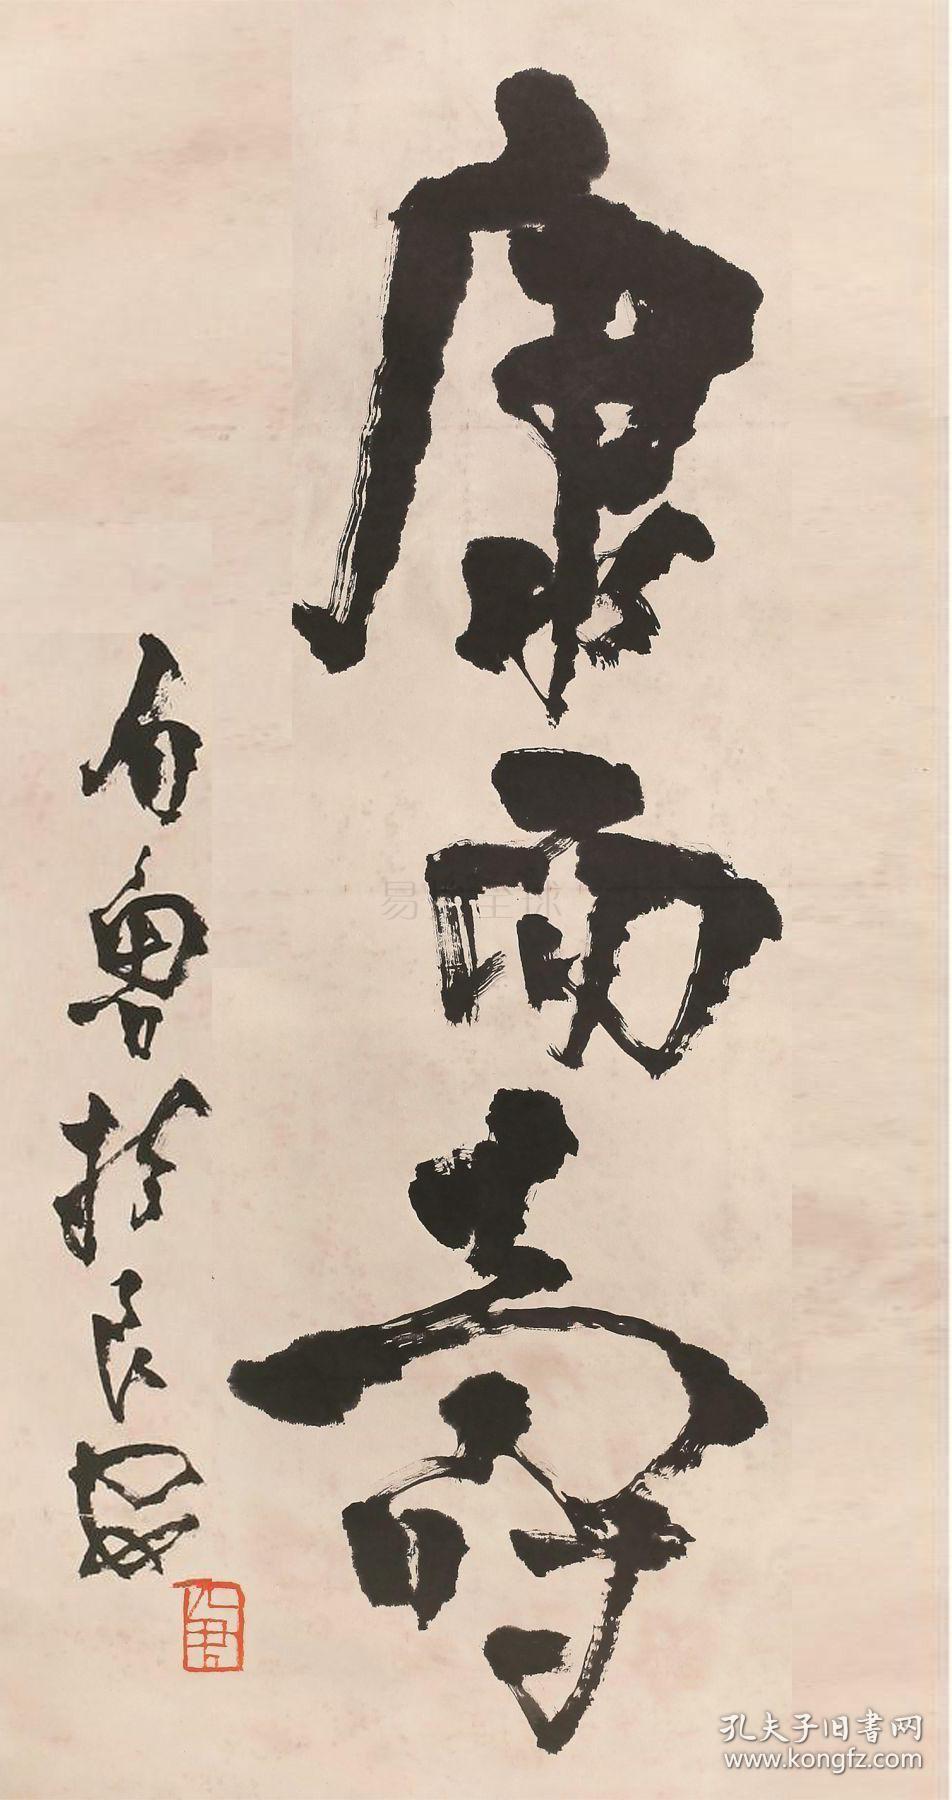 康而寿
白鲁於长安
易拍全球
孔夫子旧書网
www.kongfz.com